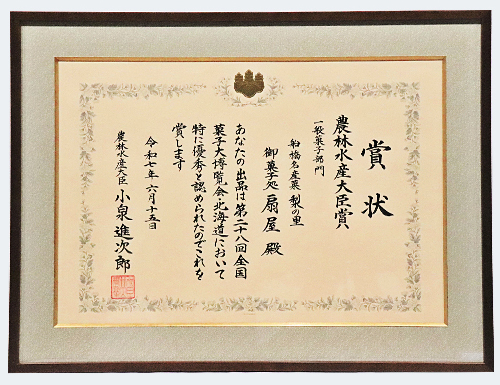 賞状
農林水産大臣賞
一般菓子部門
船橋名産菓 梨の里
御菓子処 扇屋 殿
あなたの出品は第二十八回全国
菓子大博覧会・北海道において
特に優秀と認められたのでこれを
賞します
令和七年六月十五日
農林水産大臣 小泉進次郎